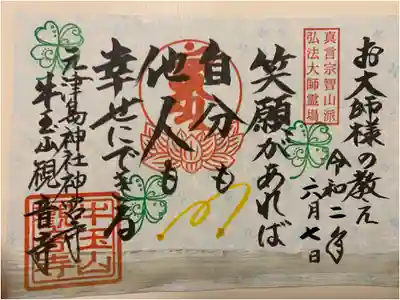 真言宗智山派
弘法大師霊場
お大師様の教え
令和二年
六月七日
笑顔があれば
自分も
他人も
幸せにできる
元津島神社神宮寺
牛玉山観音寺
牛玉山
観音寺